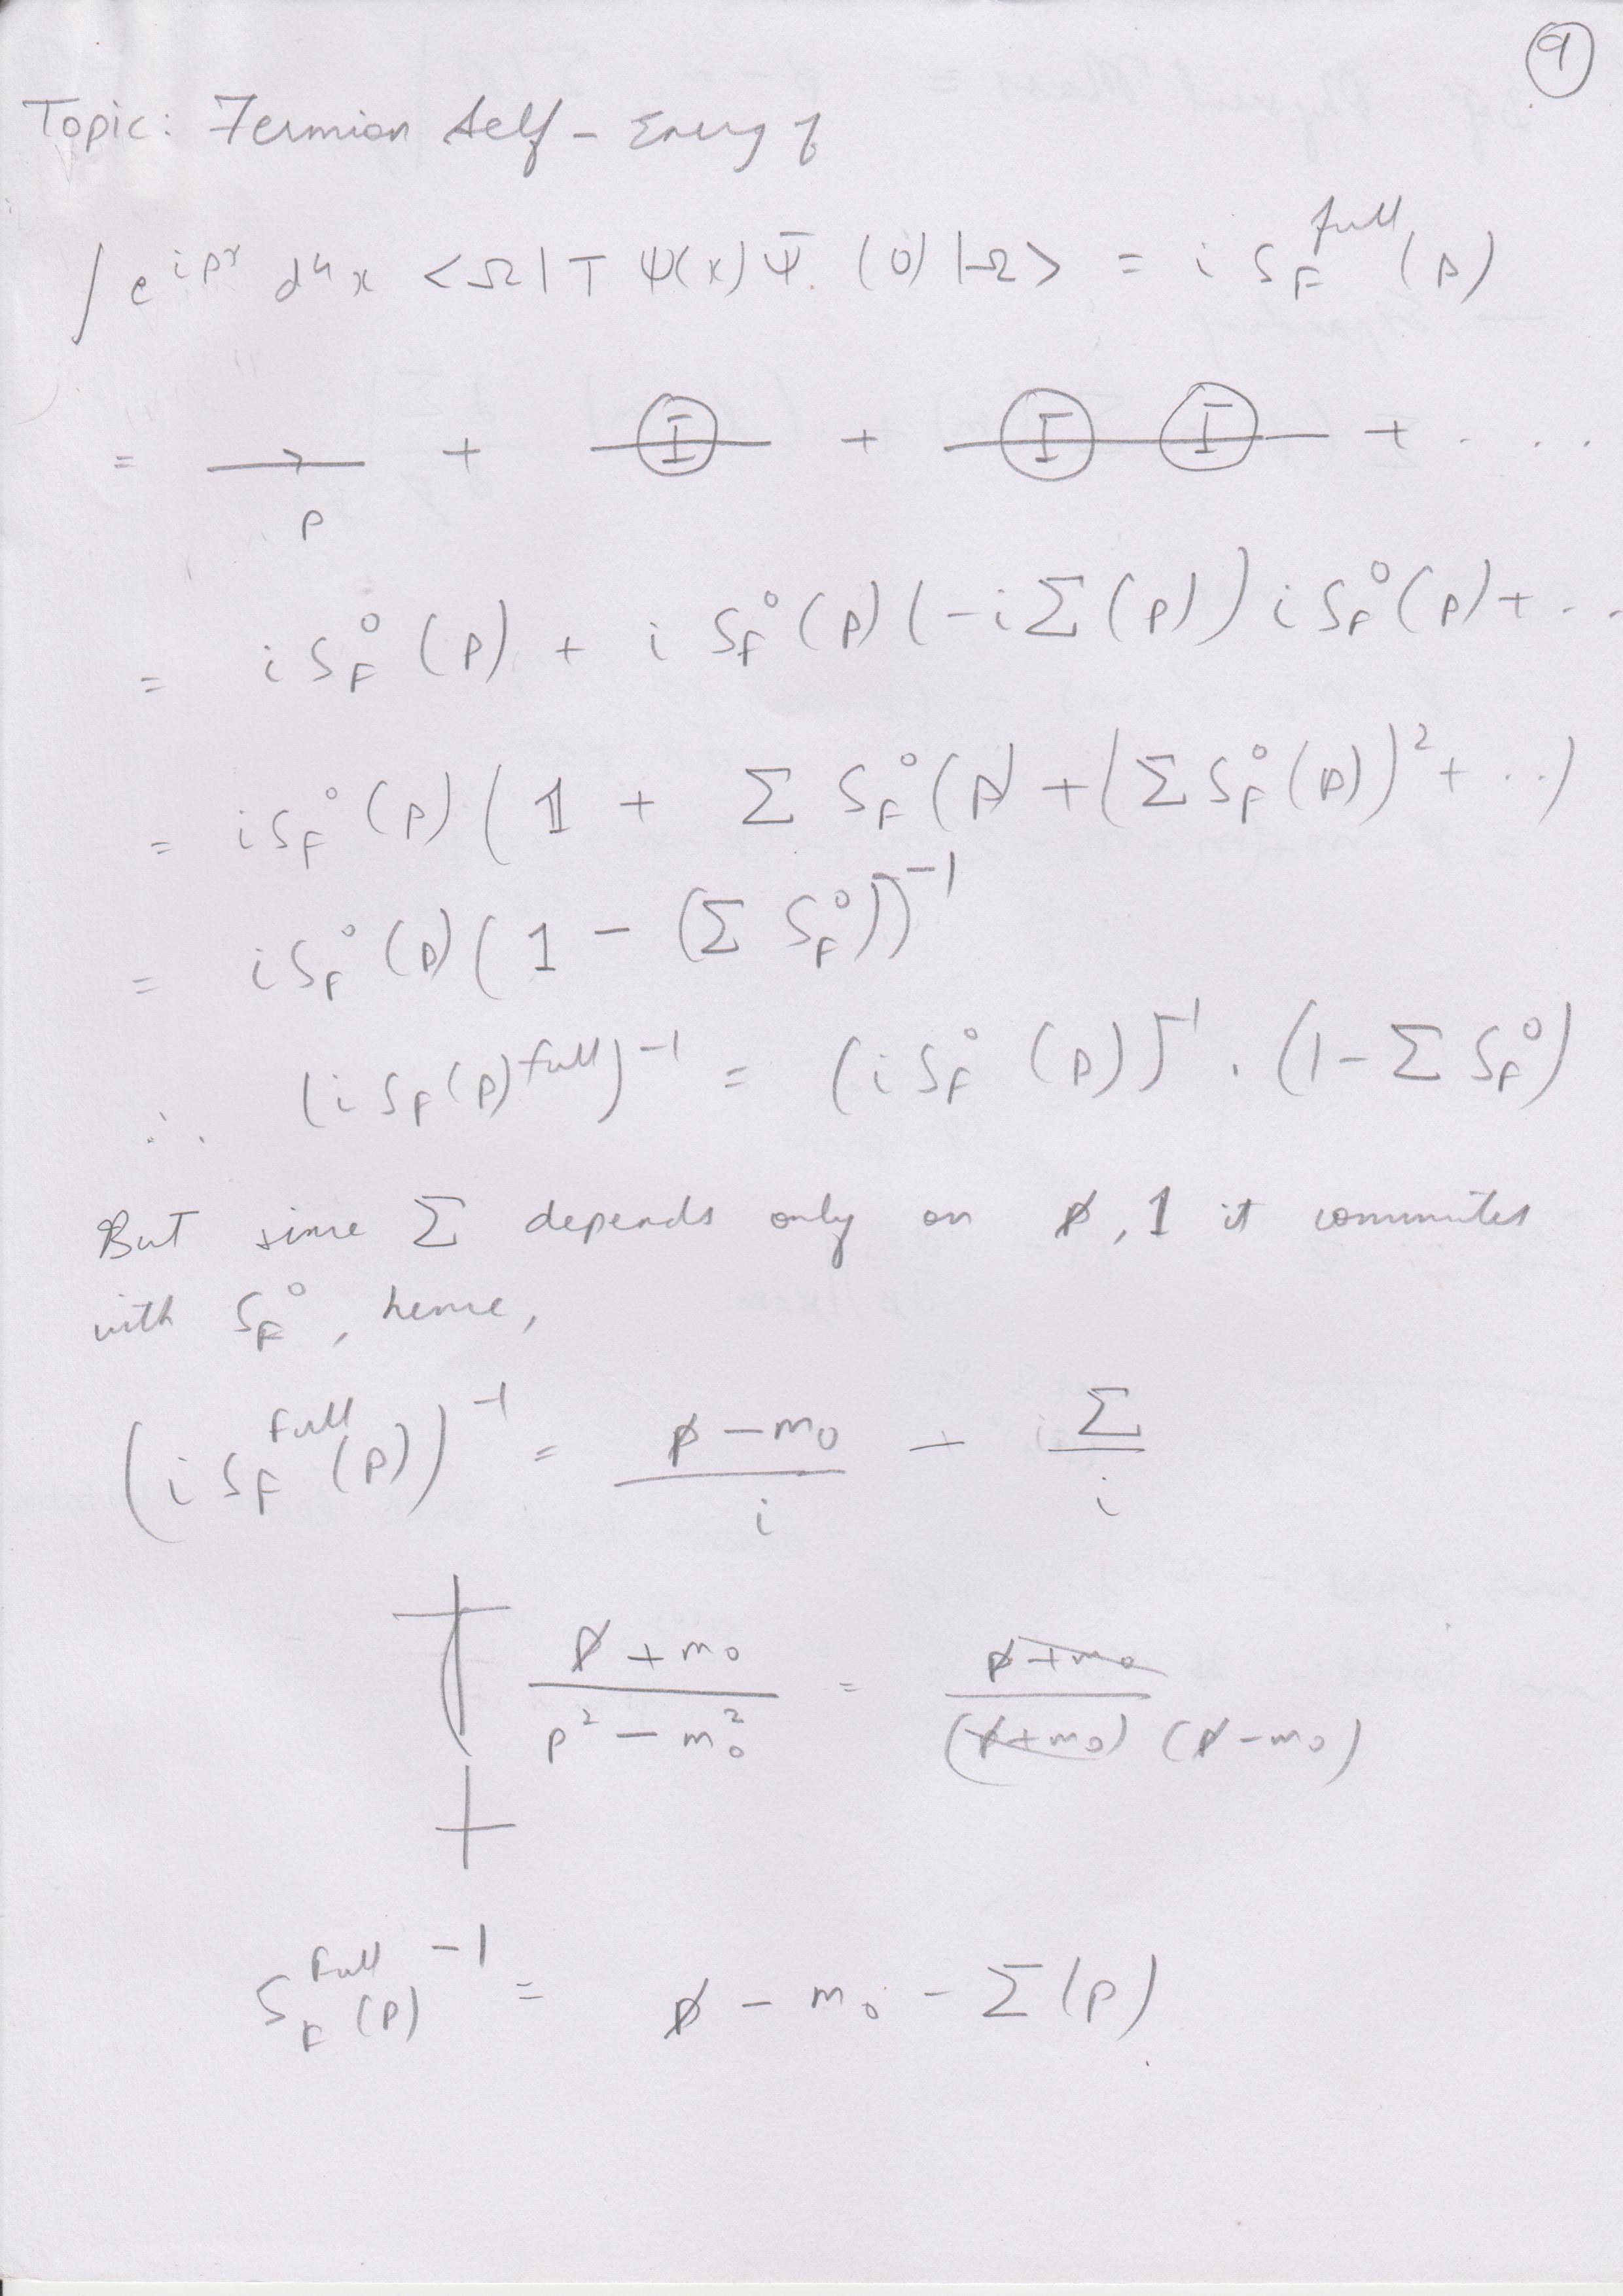 9
Topic: Fermion Self-Energy
∫ e^{ipx} d⁴x <Ω|T ψ(x) ψ̄ (0)|Ω> = i S_F^{full}(p)
= → + I + I I + ....
p
= i S_F^0 (p) + i S_F^0 (p) (-iΣ(p)) i S_F^0 (p) + ..
= i S_F^0 (p) (1 + Σ S_F^0 (p) + (Σ S_F^0 (p))^2 + ...)
= i S_F^0 (p) (1 - (Σ S_F^0))^{-1}
∴ (i S_F(p)^{full})^{-1} = (i S_F^0 (p))^{-1} . (1 - Σ S_F^0)
But since Σ depends only on p̸, 1 it commutes
with S_F^0, hence,
(i S_F^{full}(p))^{-1} = (p̸ - m_0)/i - Σ/i
(p̸ + m_0)/(p^2 - m_0^2) = (p̸ + m_0)/((p̸ + m_0) (p̸ - m_0))
S_F^{full}(p)^{-1} = p̸ - m_0 - Σ(p)